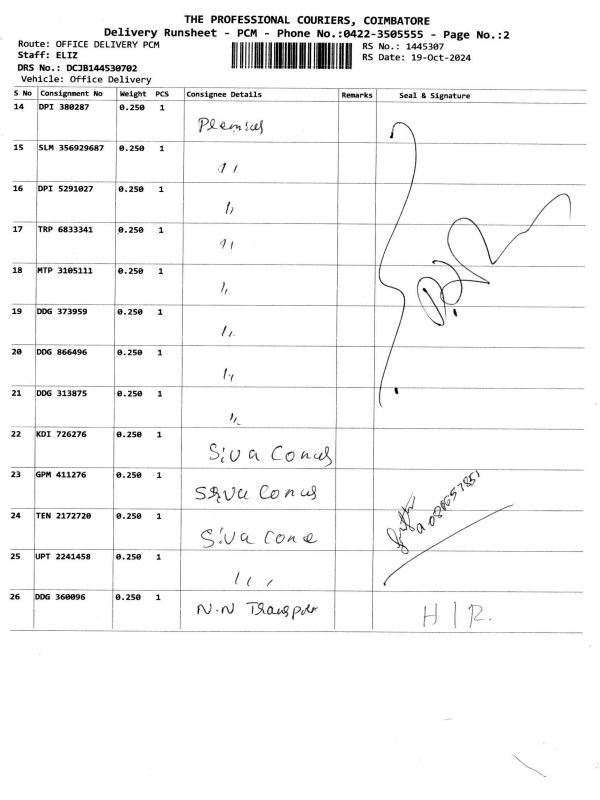 THE PROFESSIONAL COURIERS, COIMBATORE
Delivery Runsheet - PCM - Phone No.:0422-3505555 - Page No.:2
Route: OFFICE DELIVERY PCM
Staff: ELIZ
DRS No.: DCJB144530702
Vehicle: Office Delivery
RS No.: 1445307
RS Date: 19-Oct-2024
S No Consignment No Weight PCS Consignee Details Remarks Seal & Signature
14 DPI 380287 0.250 1
15 SLM 356929687 0.250 1 ''
16 DPI 5291027 0.250 1 ''
17 TRP 6833341 0.250 1 ''
18 MTP 3105111 0.250 1 ''
19 DDG 373959 0.250 1 ''
20 DDG 866496 0.250 1 ''
21 DDG 313875 0.250 1 ''
22 KDI 726276 0.250 1 Siva
23 GPM 411276 0.250 1 Siva
24 TEN 2172720 0.250 1 Siva
25 UPT 2241458 0.250 1 ''
26 DDG 360096 0.250 1 N.N